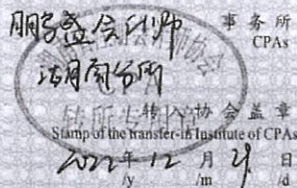 鹏盛会计师 事务所
CPAs
分所
转所专用章
转入协会盖章
Stamp of the transfer-in Institute of CPAs
2022年12月21日
/y /m /d